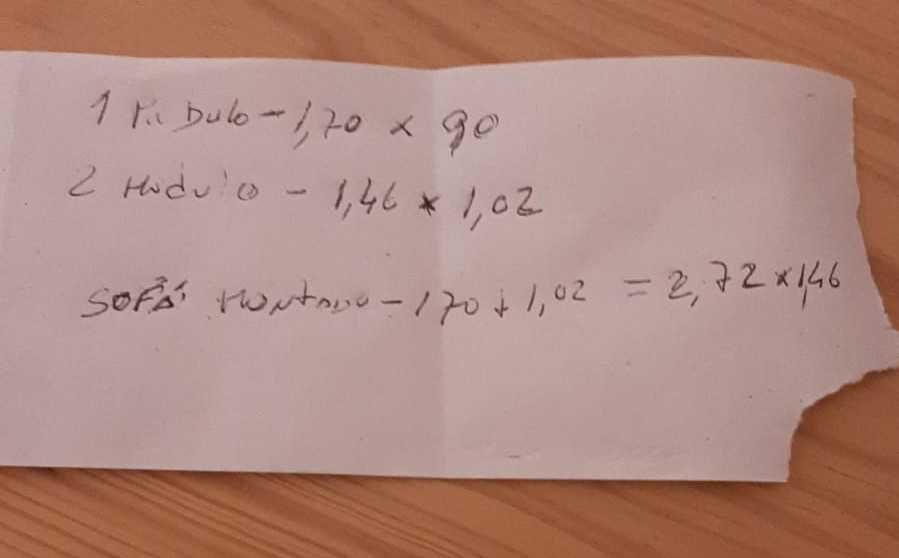 1 Módulo - 1,70 x 90
2 Módulo - 1,46 x 1,02
SOFÁ MONTADO - 170 + 1,02 = 2,72 x 1,46